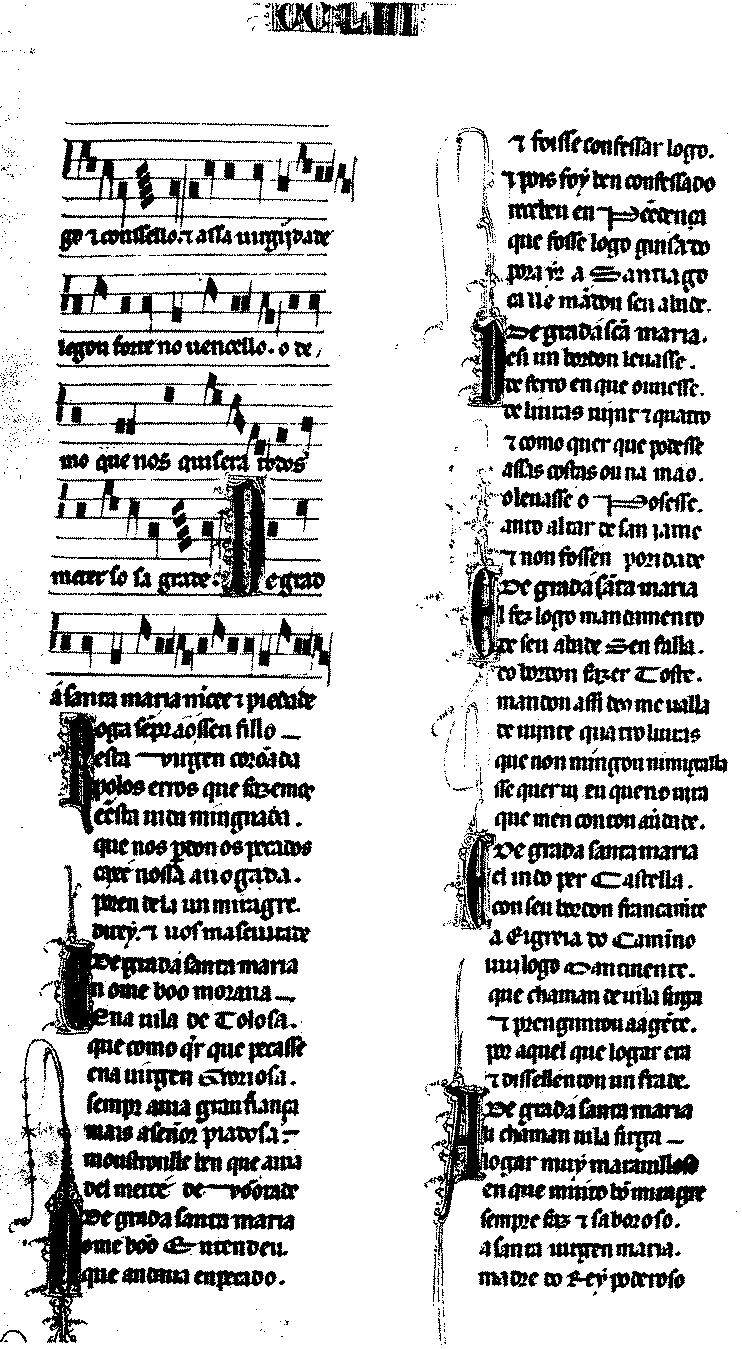 CCLIII
go ⁊ conssello. ⁊ assa uirgĩidade
legou forte no uencello. o de
mo que nos quisera todos
meter so sa grade: De grad
á santa maria mercee ⁊ piedade
Roga sẽpr aossen fillo
esta uirgen corõada
polos erros que fazemꝯ
ca esta nada minguada.
que nos perdon os pecados
ca é nossa auogada.
poren dela un miragre.
direy. ⁊ uos m ascuitade
De grada santa maria
Un ome bõo moraua
Ena uila de Tolosa.
que como qr̃ que pecasse
ena uirgen Groriosa.
sempr auia gran fiança
mais a señor piadosa.
mostroulle ben que auia
del mercee de uoontade
De grada santa maria
Ome bõo Entendeu.
que andaua en pecado.
⁊ foisse confessar logo.
⁊ pois foy ben confessado
meteu en Pẽedença
que fosse logo guisado
pora yr a Santiago
ca lle mãdou seu abade.
De grada sc̃a maria.
E si un bordon leuasse.
de ferro en que ouuesse.
de liuras uijnt ⁊ quatro
⁊ como quer que podesse
assas costas ou na mão.
o leuasse o Posesse.
anto altar de san iame
⁊ non fossen poridade
De grada sãta maria
El fez logo mandamento
de seu abade Sen falla.
o bordon fazer Toste.
mandou assi deo me ualla
de uijnte quatro liuras
que non mingou nimigalla
sse quer ũa en que no uira
que m en conton en uaidade.
De grada santa maria
El indo per Castella.
con seu bordon francamente
a Eigreia do Camino
uiu logo Dantinente.
que chaman de uila sirga
⁊ preguntou a a gẽte.
por aquel que logar era
⁊ disseron don un frade.
De grada santa maria
Ali chaman uila sirga
logar muy marauilloso
en que muito bõ miragre
sempre faz ⁊ saboroso.
a santa uirgen maria.
madre do Rey poderoso